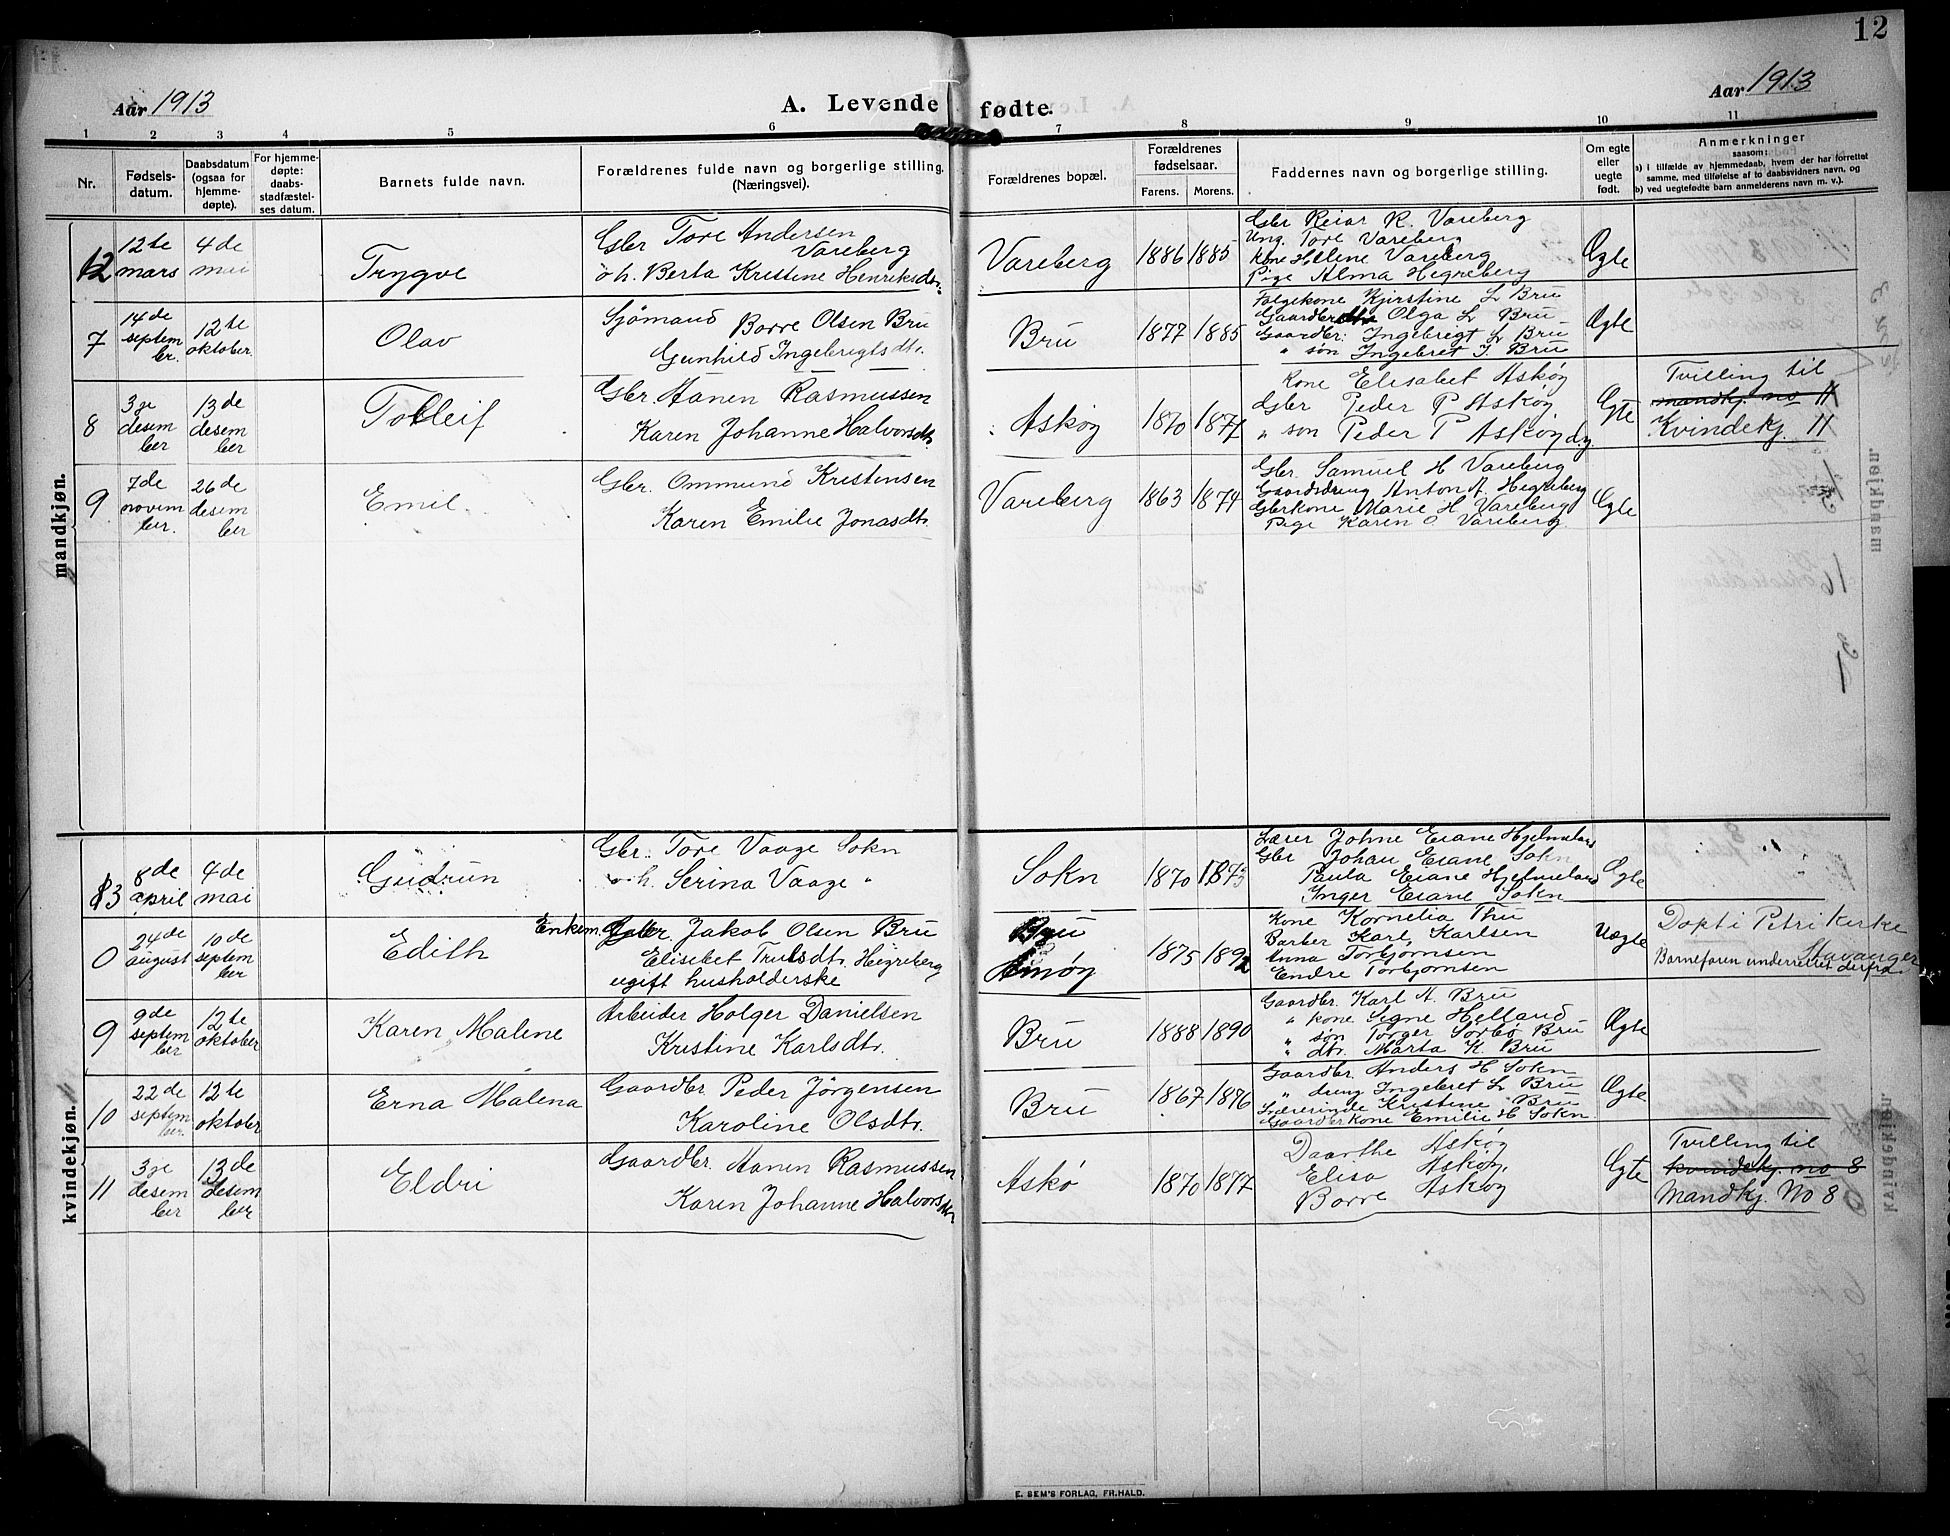 12
Aar 1913
A. Levende fødte.
Aar 1913
1 2 3 4 5 6 7 8 9 10 11
Nr.
Fødsels-
datum.
Daabsdatum
(ogsaa for
hjemme-
døpte).
For hjemme-
døpte:
daabs-
stadfæstel-
ses datum.
Barnets fulde navn.
Forældrenes fulde navn og borgerlige stilling.
(Næringsvei).
Forældrenes bopæl.
Forældrenes
fødselsaar.
Farens. Morens.
Faddernes navn og borgerlige stilling.
Om egte
eller
uegte
født.
Anmerkninger
saasom:
a) i tilfælde av hjemmedaab, hvem der har forrettet
samme, med tilføielse af to daabsvidners navn, og
b) ved uegtefødte barn anmelderens navn m. v.).
mandkjøn.
12
12te
mars
4de
mai
Trygve
Gbr Tore Andersen
Vareberg
o h. Berta Kristine Henriksdtr.
Vareberg
1886 1885
Gbr Reiar R. Vareberg
Ung. Tore Vareberg
Kone Helene Vareberg
Pige Alma Hegreberg
Egte
7
14de
septem
ber.
12te
oktober.
Olav
Sjömand Borre Olsen Bru
Gunhild Ingebrigtsdtr.
Bru
1877 1885
Følgekone Kjirstine L Bru
Gaardbr dtr Olga L Bru
Gaardbr. Ingebrigt L Bru
" søn Ingebret I. Bru
Egte
8
3je
desem
ber
13de
desem
ber
Tolleif
Gbr. Aanen Rasmussen
Karen Johanne Halvorsdtr.
Askøy
1870 1877
Kone Elisabet Askøy
Gbr Peder P Askøy
" søn Peder P Askøy d.y.
Egte
Tvilling til
mandkj. no 11
Kvindekj. 11
9
7de
novem
ber.
26de
desem
ber
Emil
Gbr. Ommund Kristensen
Karen Emilie Jonasdtr.
Vareberg
1863 1874
Gbr. Samuel H Vareberg
Gaardsdreng Anton A. Hegreberg
Gbrkone Marie H Vareberg
Pige Karen O Vareberg
Egte
mandkjøn.
kvindekjøn.
13
8de
april
4de
mai
Gudrun
Gbr. Tore Vaage Sokn
o h. Serina Vaage "
Sokn
1870 1873
Lærer Johne Eiane Hjelmeland
Gbr Johan Eiane Sokn
Paula Eiane Hjelmeland
Inger Eiane Sokn
Egte
0
24de
august
10de
septem
ber
Edith
Enkem. Gbr. Jakob Olsen Bru
Elisebet Trulsdtr. Hegreberg
ugift husholderske
Bru
Amøy
1875 1892
Kone Kornelia Thu
Barber Karl Karlsen
Anna Torbjørnsen
Endre Torbjørnsen
Uegte
Døpt i Petri Kirke
Stavanger
Barnefaren underrettet derfra
9
9de
septem
ber
12te
oktober
Karen Malene
Arbeider Holger Danielsen
Kristine Karlsdtr.
Bru
1888 1890
Gaardbr. Karl A. Bru
" kone Signe Helland
" søn Torger Sørbø Bru
" dtr. Marta K. Bru
Egte
10
22de
septem
ber.
12te
oktober
Erna Malena
Gaardbr. Peder Jörgensen
Karoline Olsdtr.
Bru
1867 1876
Gaardbr. Anders H Sokn
" dreng Ingebret L Bru
Lærerinde Kristine Bru
Gaardbrkone Emilie H Sokn
Egte
11
3je
desem
ber
13de
desem
ber
Eldri
Gaardbr. Aanen Rasmussen
Karen Johanne Halvorsdtr
Askø
1870 1877
Daarthe Askøy
Elisa Askøy,
Borre Askøy
Egte
Tvilling til
kvindekj. no 8
Mandkj. No 8
kvindekjøn.
E. SEM'S FORLAG, FR.HALD.